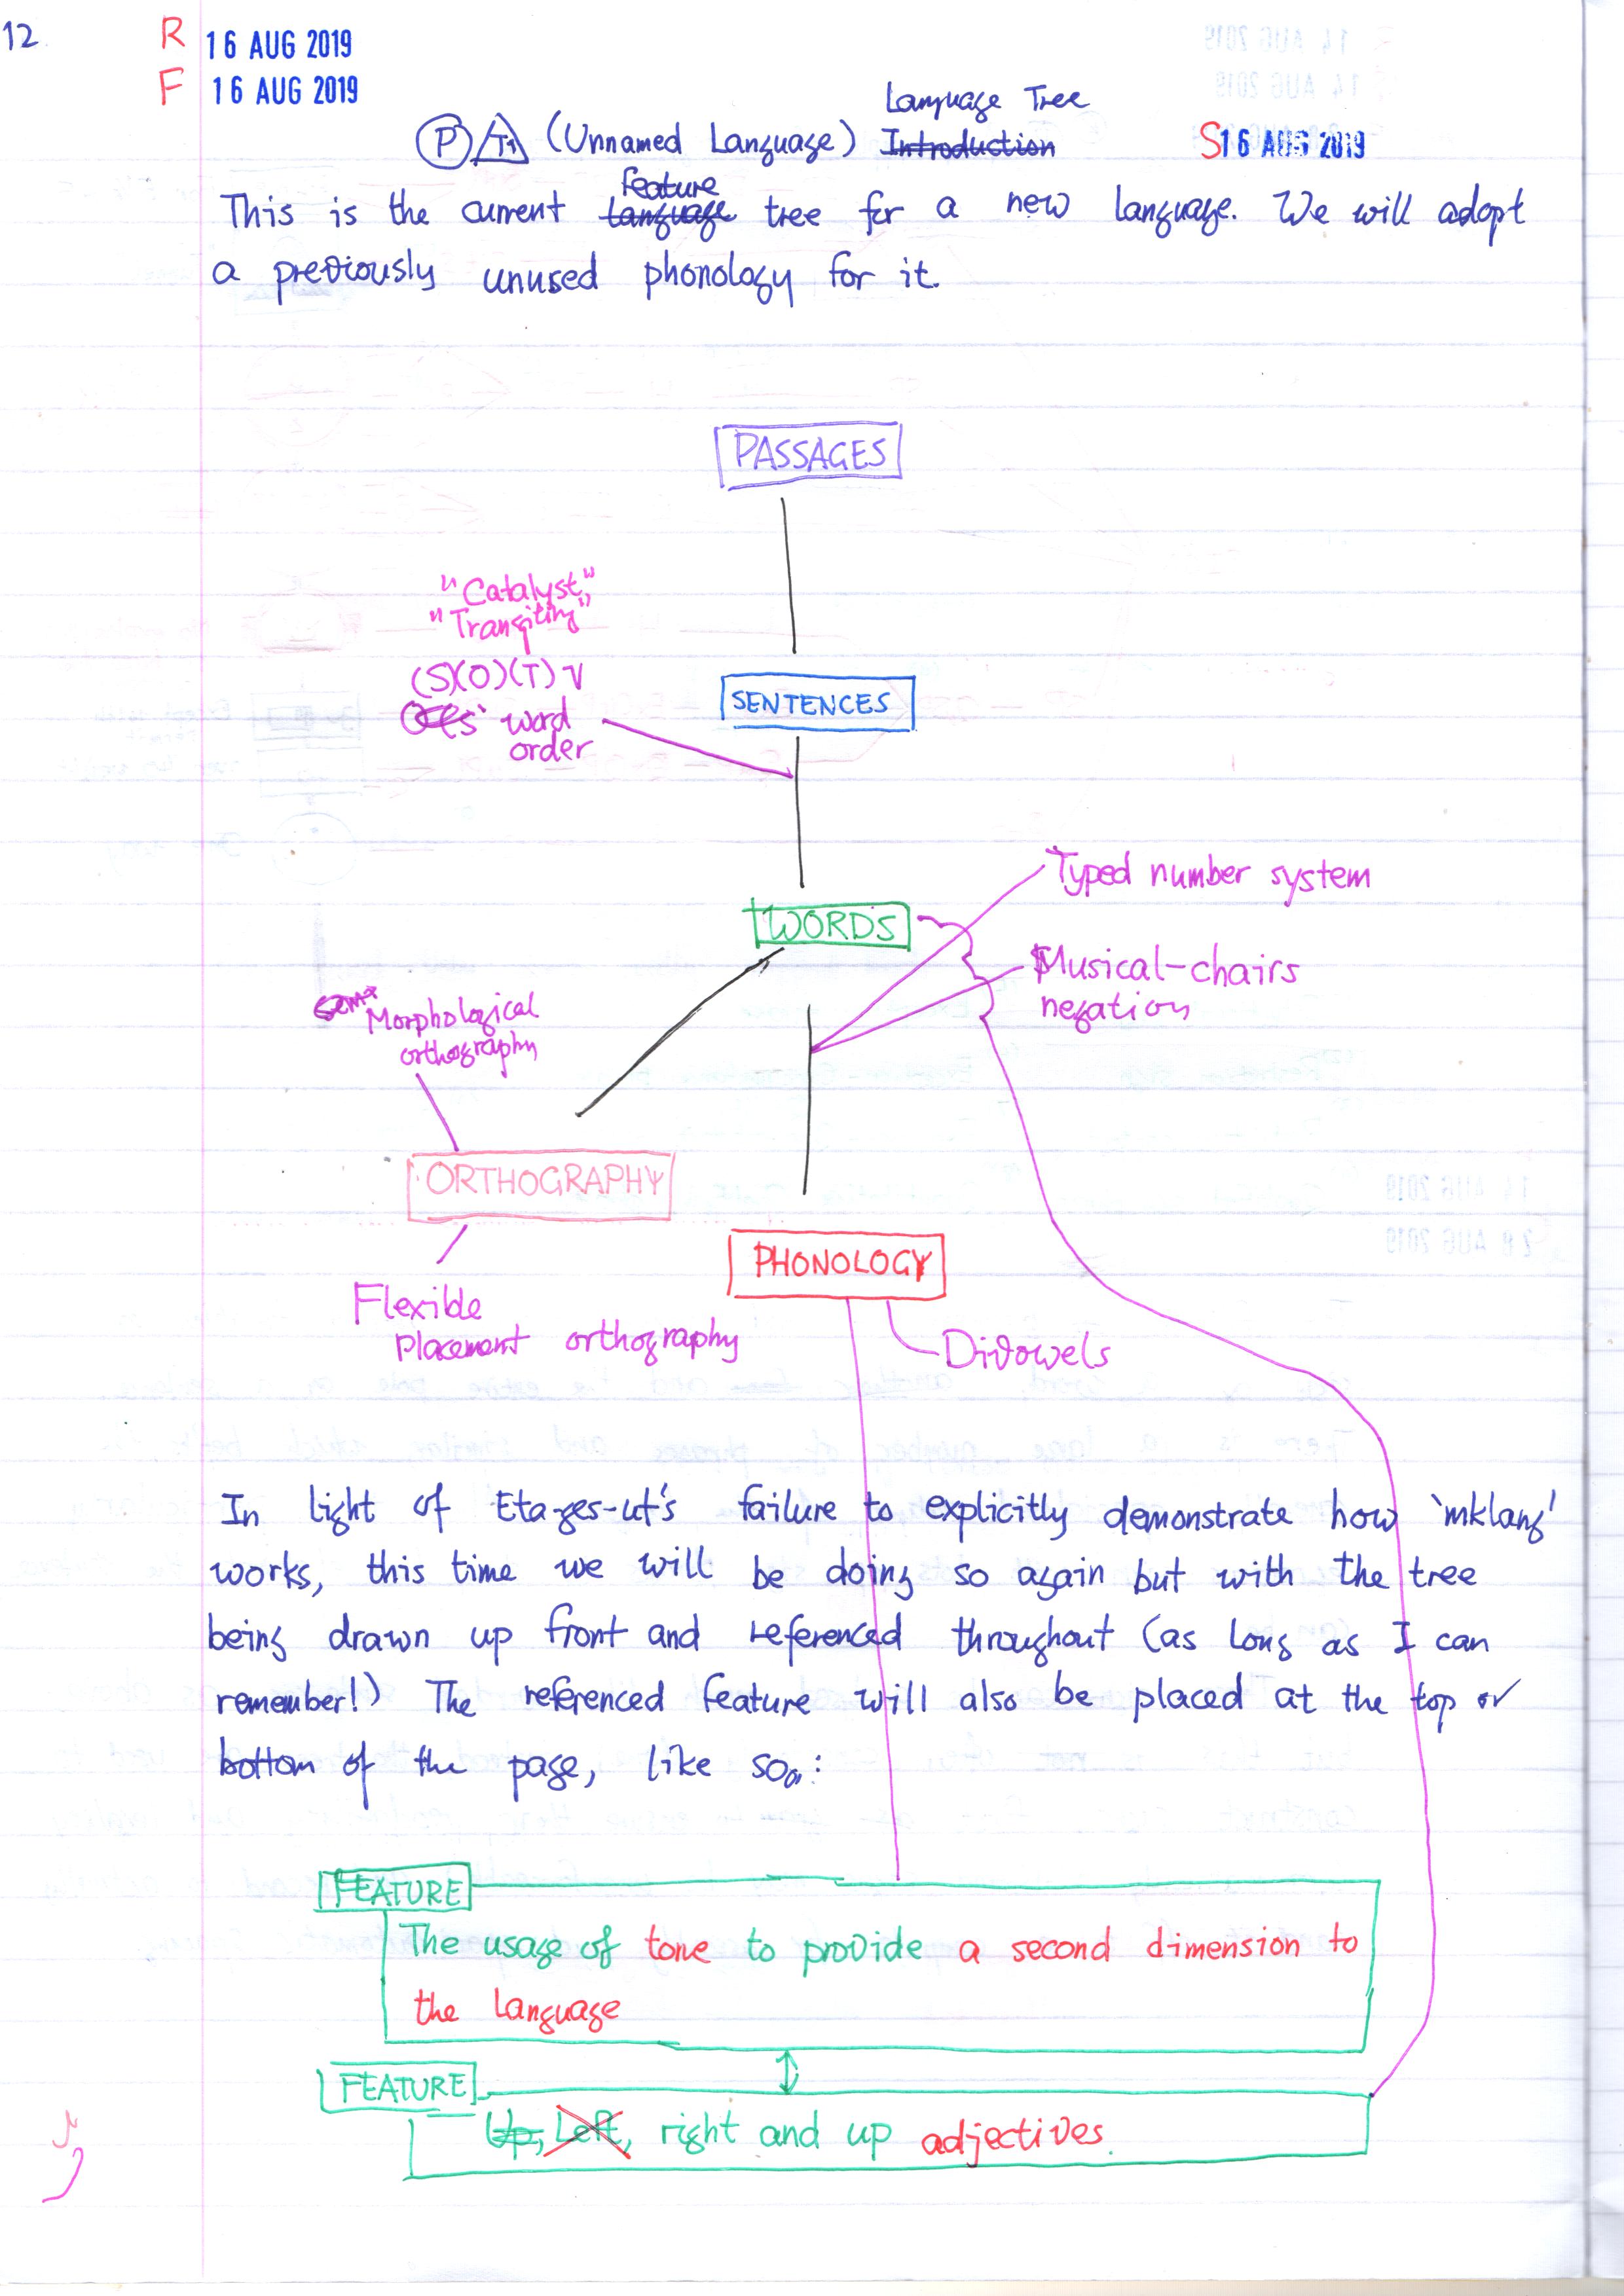 12
R 16 AUG 2019
F 16 AUG 2019
Language Tree
P T1 (Unnamed Language) Introduction
S 16 AUG 2019
feature
This is the current language tree for a new language. We will adopt
a previously unused phonology for it.
PASSAGES
"Catalyst,"
"Transiting"
(S)(O)(T)V
word
order
SENTENCES
Typed number system
WORDS
Musical-chairs
negation
Morphological
orthography
ORTHOGRAPHY
PHONOLOGY
Flexible
Placement orthography
Divowels
In light of Etazes-ut's failure to explicitly demonstrate how 'mklang'
works, this time we will be doing so again but with the tree
being drawn up front and referenced throughout (as long as I can
remember!) The referenced feature will also be placed at the top or
bottom of the page, like so:
FEATURE
The usage of tone to provide a second dimension to
the language
FEATURE
Up, Left, right and up adjectives.